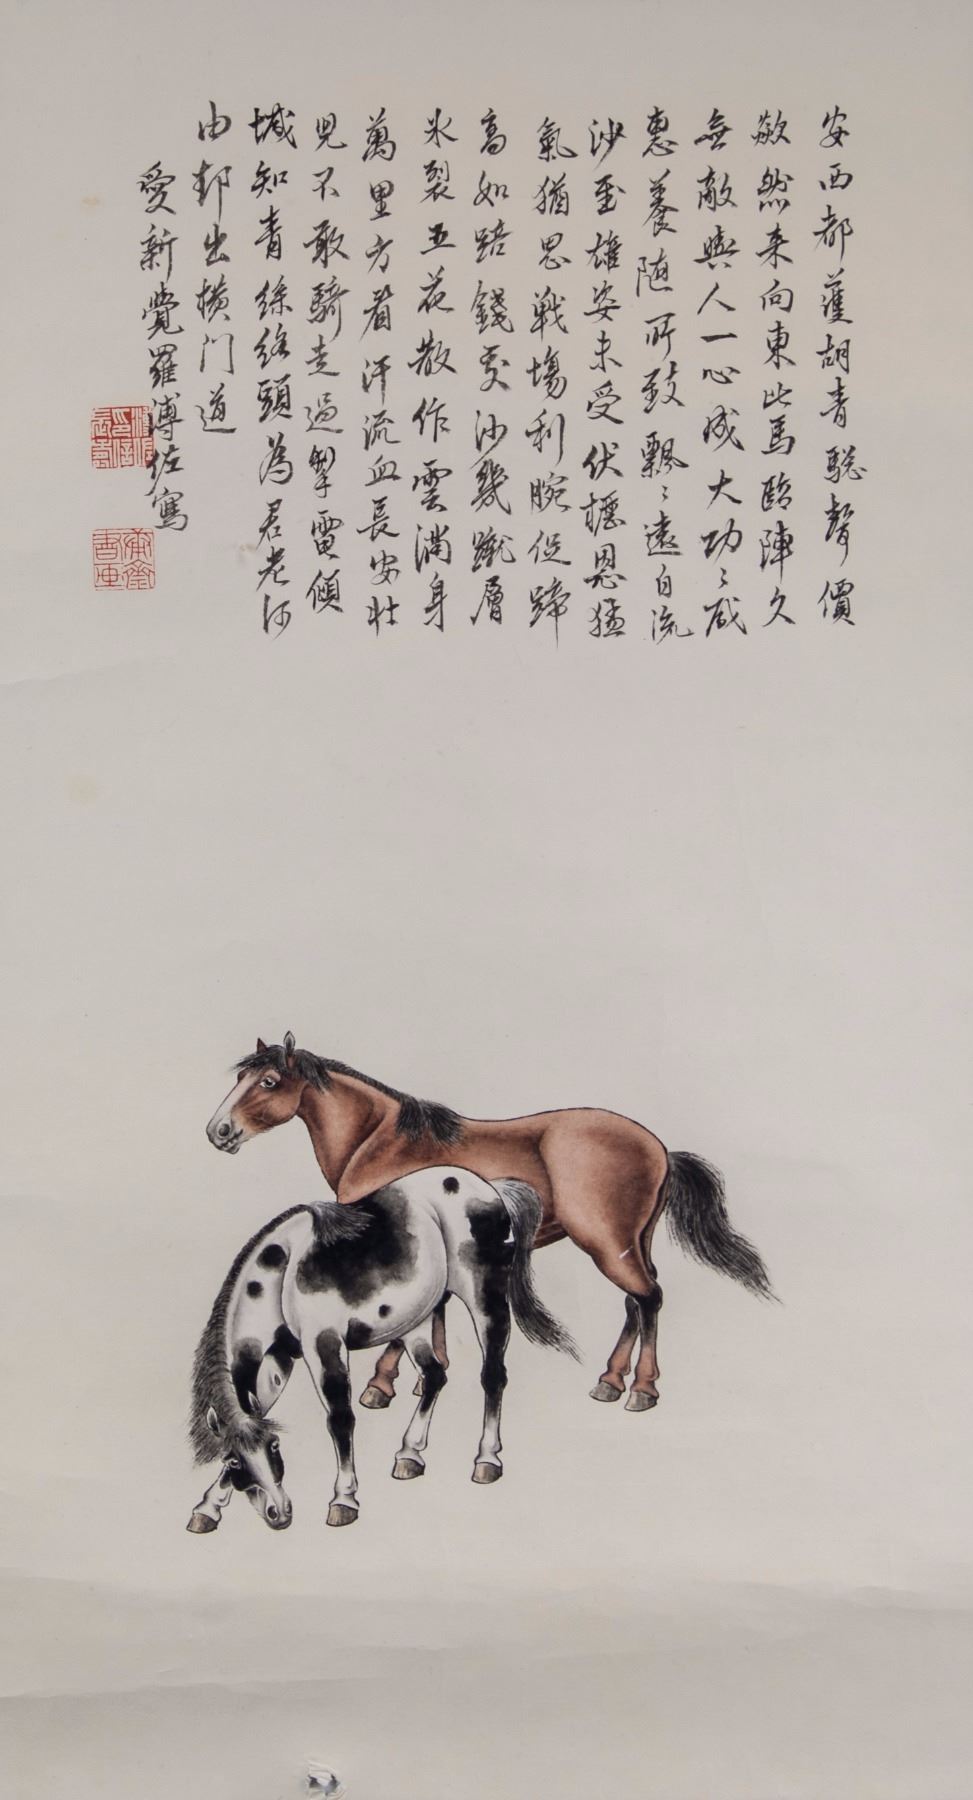 安西都護胡青驄聲價
欻然来向東此馬臨陣久
無敵與人一心成大功〻成
惠養随所致飄〻遠自流
沙至雄姿未受伏櫪恩猛
氣猶思戰場利腕促蹄
高如踣鐵交沙幾蹴層
氷裂五花散作雲滿身
萬里方看汗流血長安壮
兒不敢騎走過掣電傾
城知青絲絡頭為君老何
由却出横门道
愛新覺羅溥佐寫